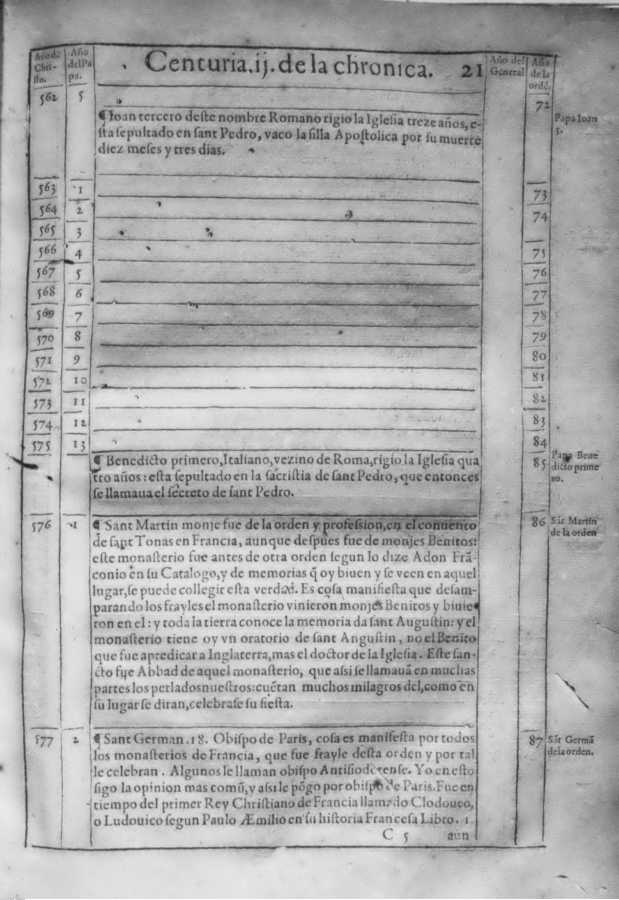 Año de Christo. Año del Papa. Centuria.ij. de la chronica. 21 Año del General Año de la ordẽ.
562 5 72
¶ Ioan tercero deste nombre Romano rigio la Iglesia treze años, e- Papa Ioan 3.
sta sepultado en sant Pedro, vaco la silla Apostolica por su muerte
diez meses y tres dias.
563 1 73
564 2 74
565 3
566 4 75
567 5 76
568 6 77
569 7 78
570 8 79
571 9 80
572 10 81
573 11 82
574 12 83
575 13 84
¶ Benedicto primero, Italiano, vezino de Roma, rigio la Iglesia qua 85 Papa Bene
tro años: esta sepultado en la sacristia de sant Pedro, que entonces dicto prime
se llamaua el secreto de sant Pedro. ro.
576 1 ¶ Sant Martin monje fue de la orden y profession, en el conuento 86 Sãt Martin
de sant Tonas en Francia, aunque despues fue de monjes Benitos: de la orden
este monasterio fue antes de otra orden segun lo dize Adon Frã-
conio en su Catalogo, y de memorias q̃ oy biuen y se veen en aquel
lugar, se puede collegir esta verdad. Es cosa manifiesta que desam-
parando los frayles el monasterio vinieron monjes Benitos y biuie
ron en el: y toda la tierra conoce la memoria da sant Augustin: y el
monasterio tiene oy vn oratorio de sant Angustin, no el Benito
que fue a predicar a Inglaterra, mas el doctor de la Iglesia. Este san-
cto fue Abbad de aquel monasterio, que assi se llamauã en muchas
partes los perlados nuestros: cuẽtan muchos milagros del, como en
su lugar se diran, celebrase su fiesta.
577 2 ¶ Sant German. 18. Obispo de Paris, cosa es manifiesta por todos 87 Sãt Germã
los monasterios de Francia, que fue frayle desta orden y por tal de la orden.
le celebran. Algunos le llaman obispo Antisiodorense. Yo en esto
sigo la opinion mas comũ, y assi le põgo por obispo de Paris. Fue en
tiempo del primer Rey Christiano de Francia llamado Clodoueo,
o Ludouico segun Paulo Æmilio en su historia Francesa Libro. 1.
C 5 aun